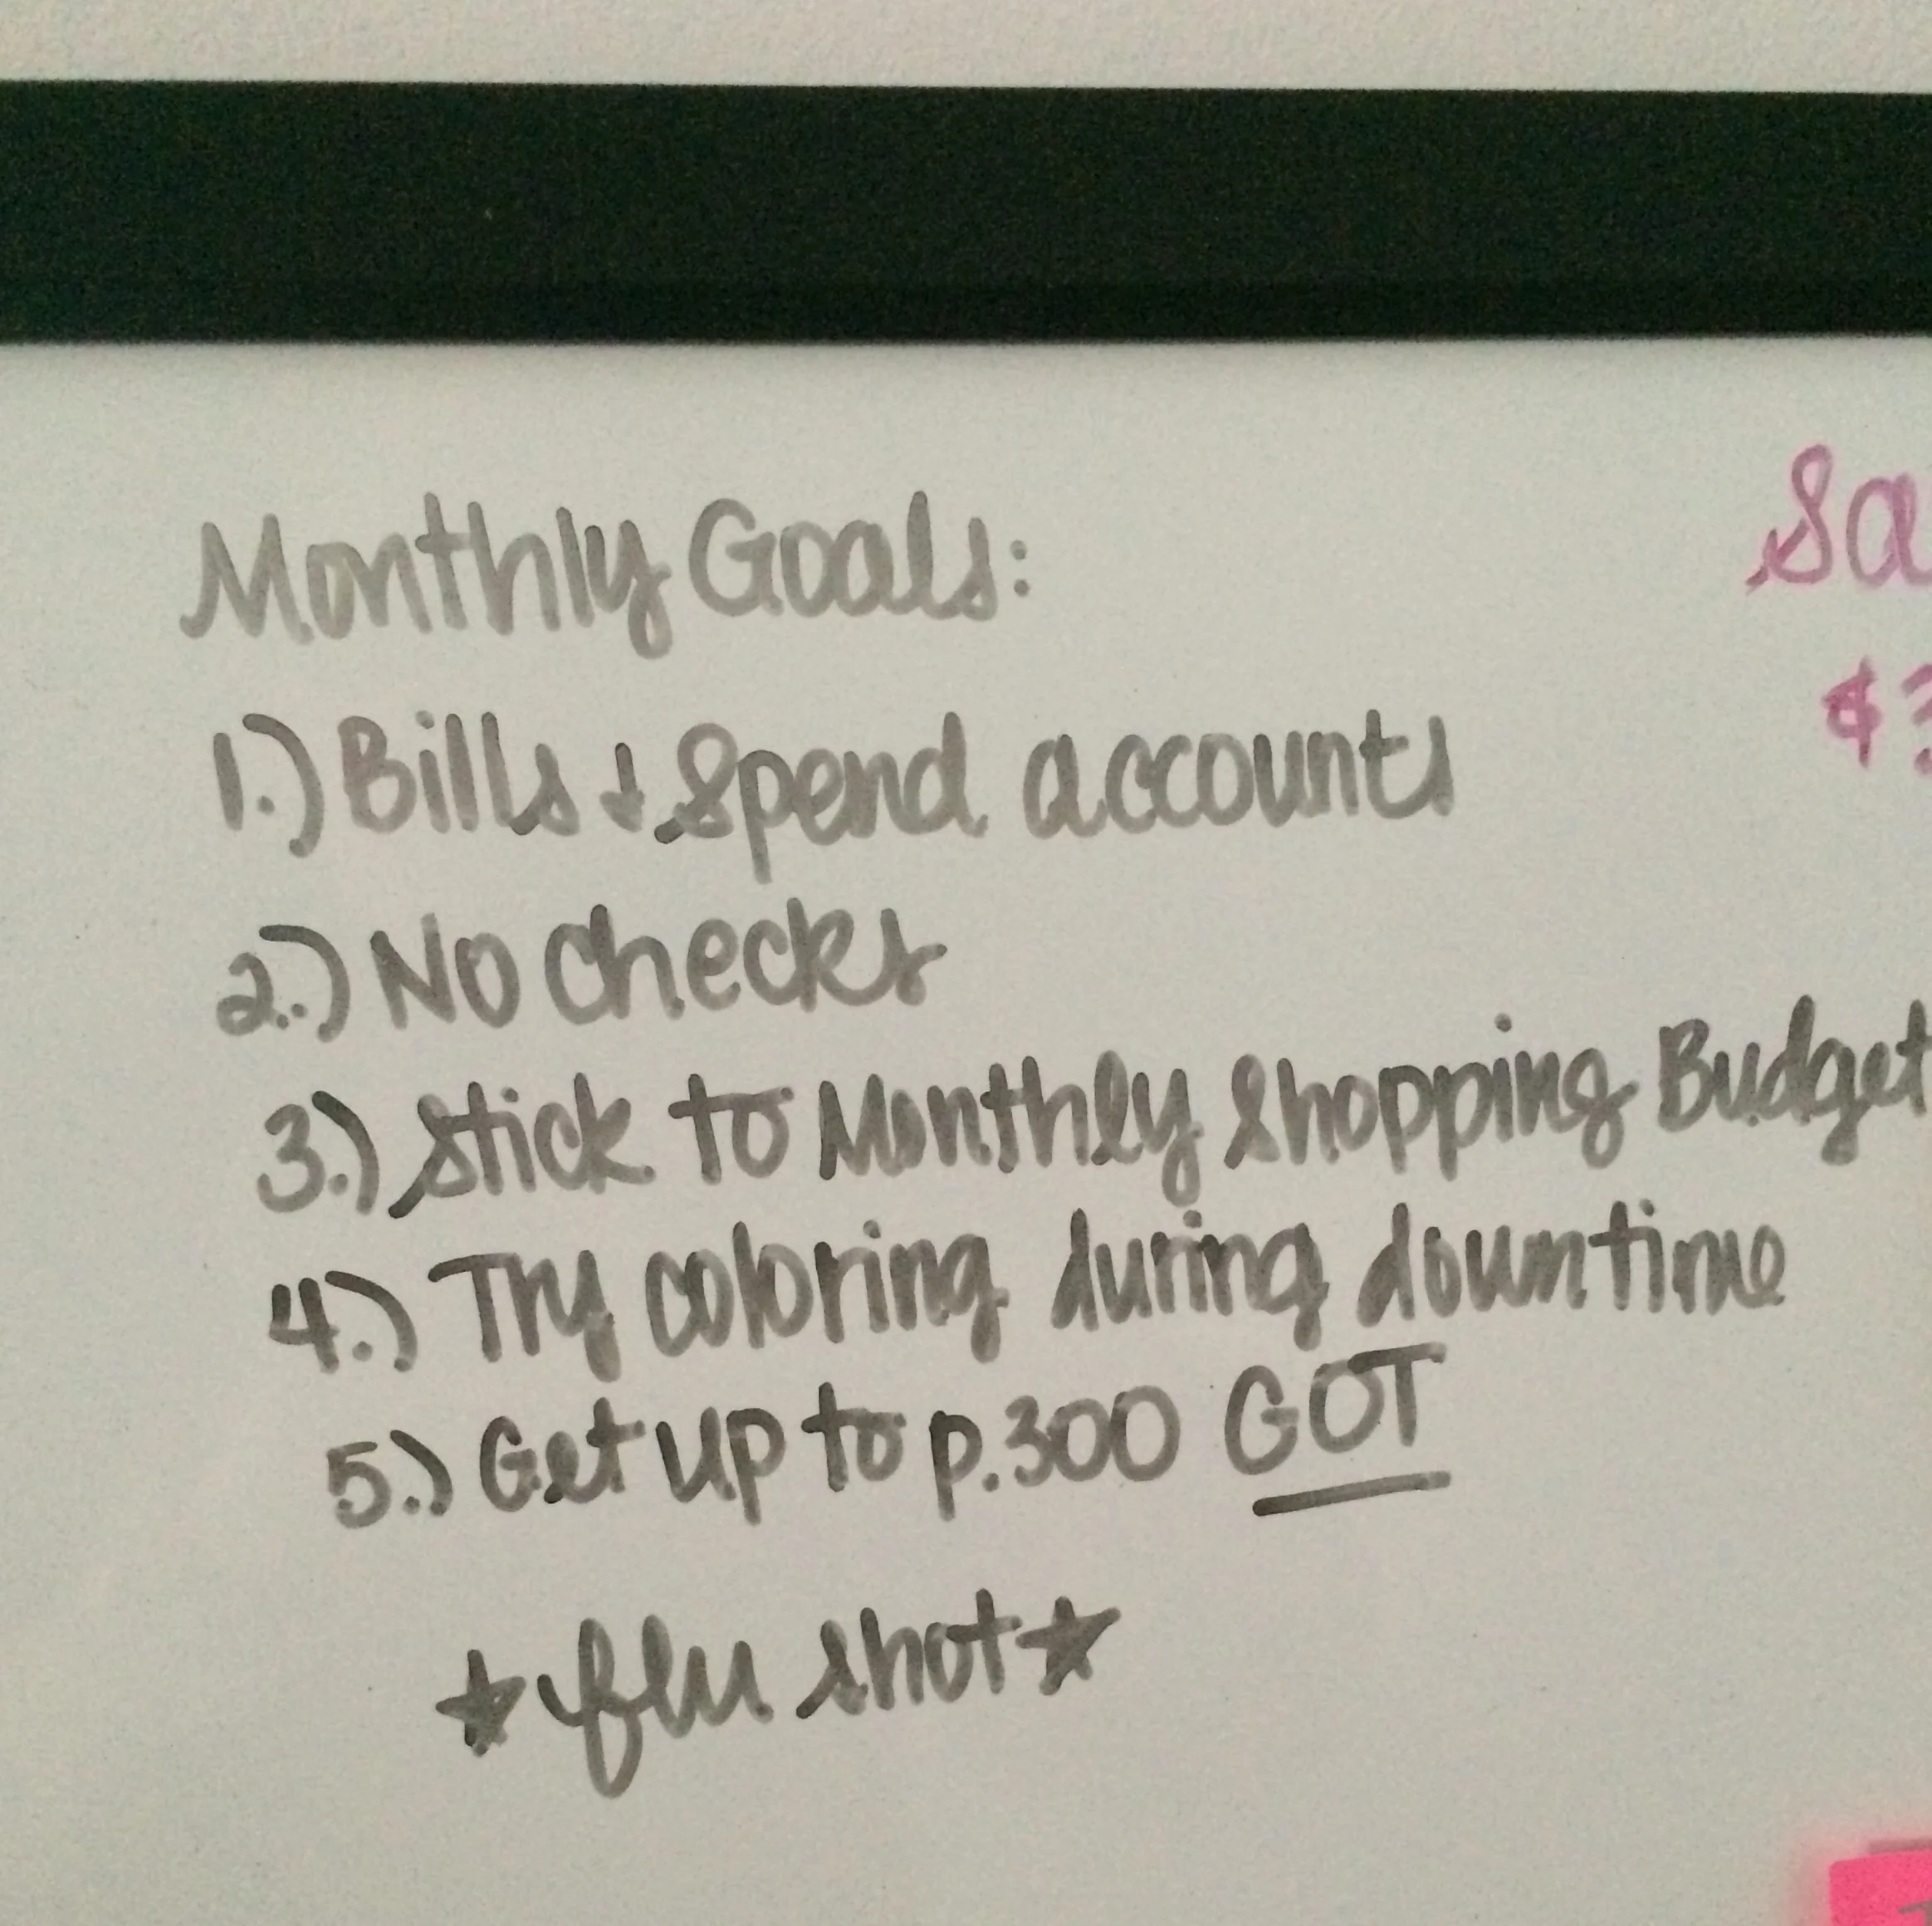 Monthly Goals:
1.) Bills + Spend accounts
2.) No Checks
3.) Stick to Monthly Shopping Budget
4.) Try coloring during downtime
5.) Get up to p.300 GOT
★ flu shot ★
Sa
$3